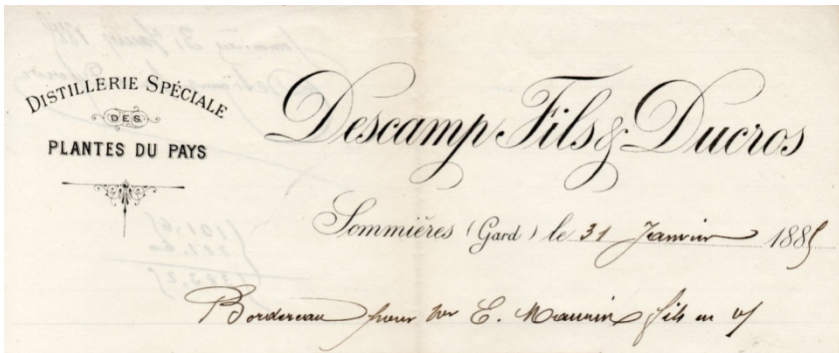 DISTILLERIE SPÉCIALE
DES
PLANTES DU PAYS
Descamp Fils & Ducros
Sommières (Gard) le 31 Janvier 1885
Bordereau pour E. fils